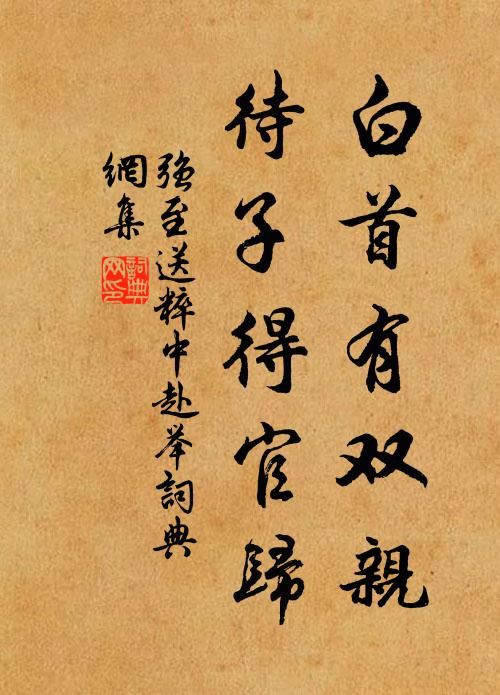 白首有双親
待子得官歸
強至送粹中赴举詞典
網集
詞典網印